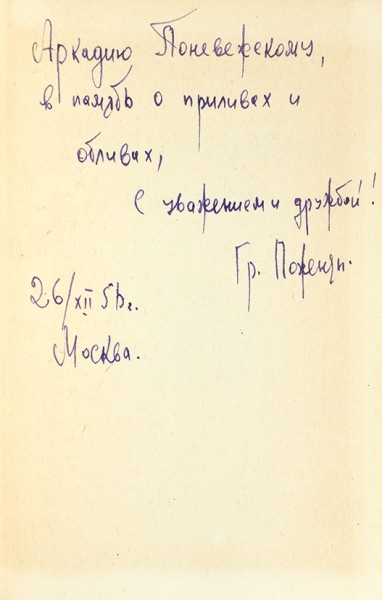 Аркадию Поневежскому,
в память о приливах и
обливах,
с уважением и дружбой!
Гр. Поженян.
26/XII 5 г.
Москва.